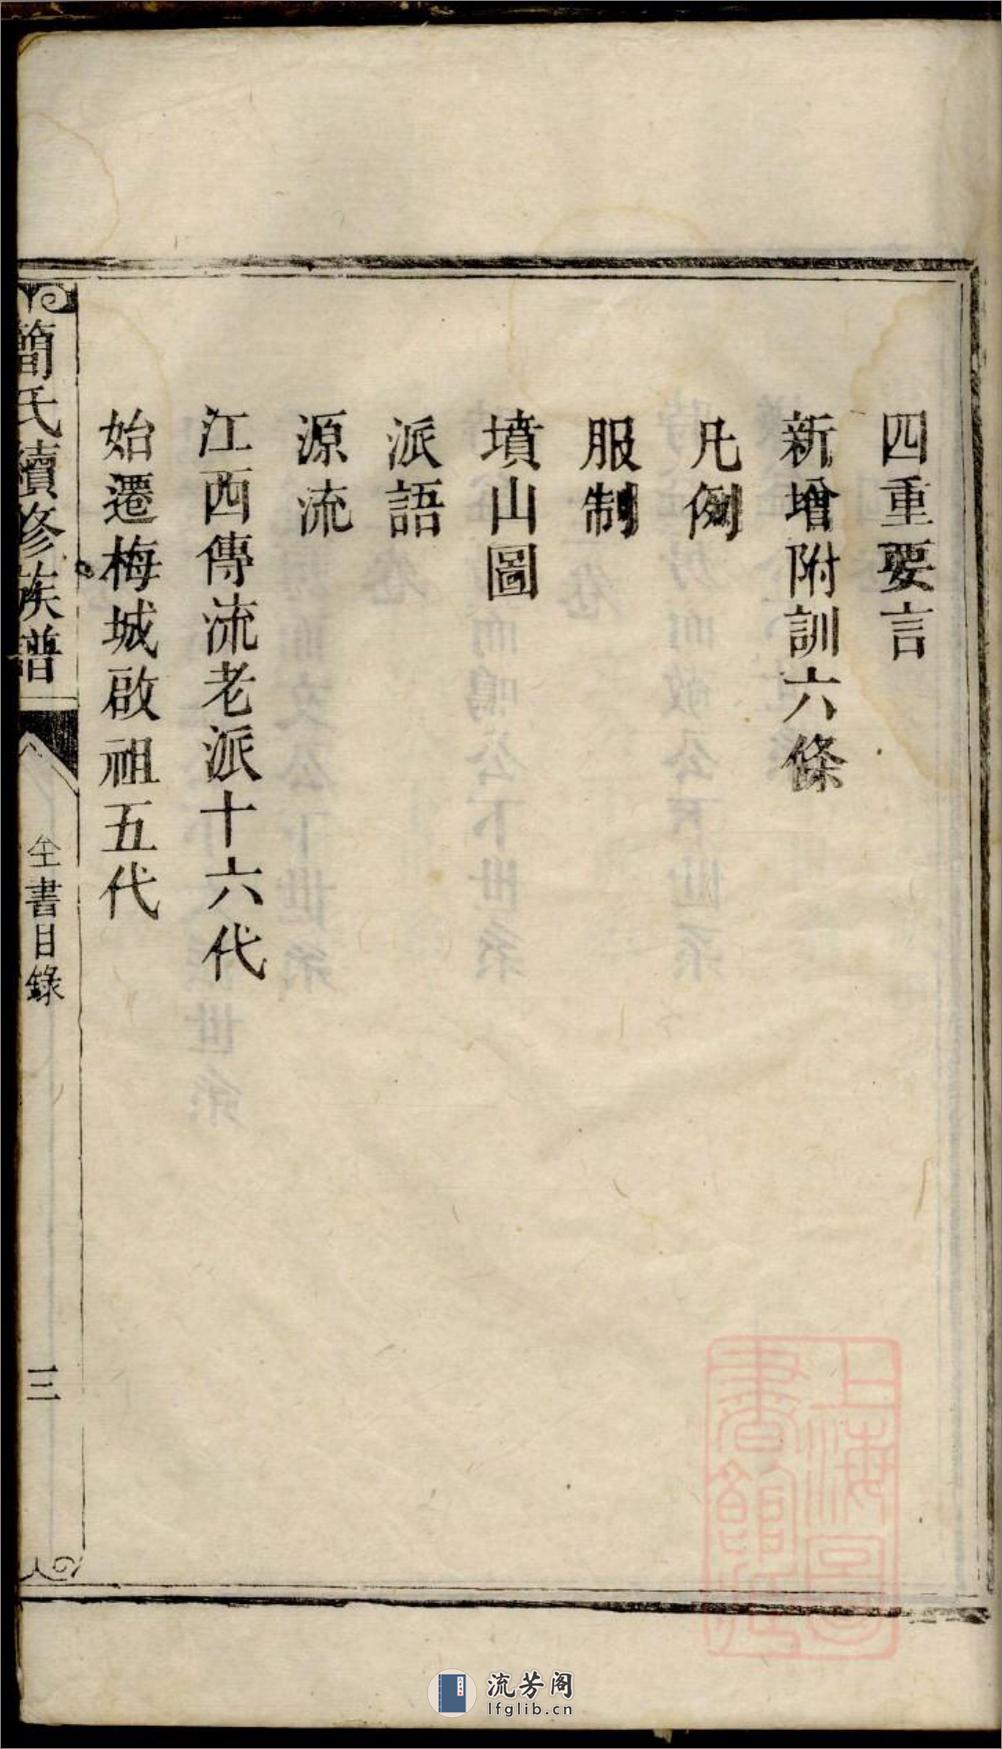 四重要言
新增附訓六條
凡例
服制
墳山圖
派語
源流
江西傳流老派十六代
始遷梅城啟祖五代
簡氏續修族譜
全書目錄
三
上海圖書館藏
流芳阁
lfglib.cn